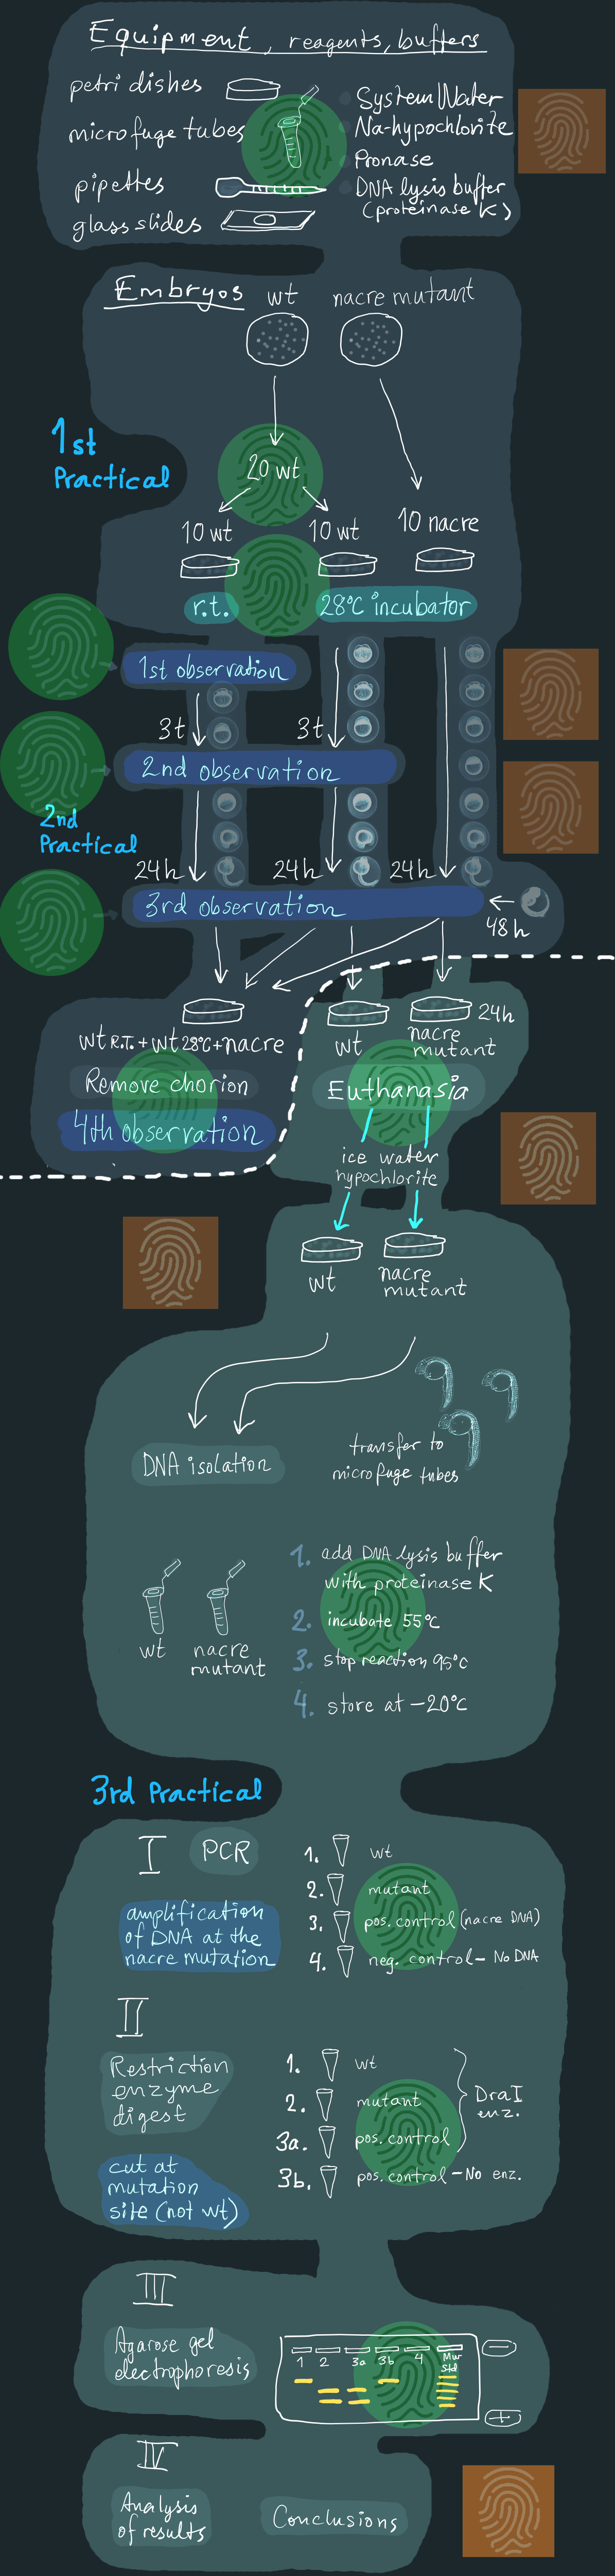 Equipment, reagents, buffers
petri dishes
microfuge tubes
pipettes
glass slides
System Water
Na-hypochlorite
Pronase
DNA lysis buffer
(proteinase K)
Embryos
wt
nacre mutant
1st
Practical
20 wt
10 wt
10 wt
10 nacre
r.t.
28°C incubator
1st observation
3t
3t
2nd observation
2nd
Practical
24h
24h
24h
3rd observation
48h
wt R.T. + wt 28°C + nacre
Remove chorion
4th observation
wt
nacre
mutant
24h
Euthanasia
ice water
hypochlorite
wt
nacre
mutant
DNA isolation
transfer to
microfuge tubes
wt
nacre
mutant
1. add DNA lysis buffer
with proteinase K
2. incubate 55°C
3. stop reaction 95°C
4. store at -20°C
3rd Practical
I PCR
amplification
of DNA at the
nacre mutation
1. wt
2. mutant
3. pos. control (nacre DNA)
4. neg. control - No DNA
II
Restriction
enzyme
digest
cut at
mutation
site (not wt)
1. wt
2. mutant
3a. pos. control
DraI
enz.
3b. pos. control - No enz.
III
Agarose gel
electrophoresis
1 2 3a 3b 4 Mw
Std
−
+
IV
Analysis
of results
Conclusions